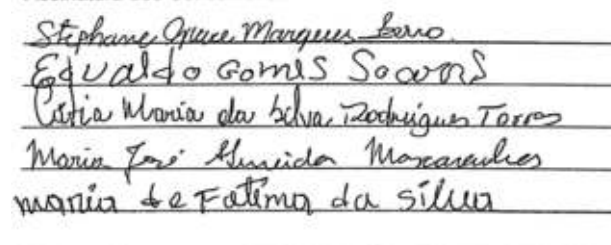 Stephane Grace Marques
Edvaldo Gomes
Cátia Maria da Silva Rodrigues Torres
Maria José Almeida Mascarenhas
maria de Fatima da Silva